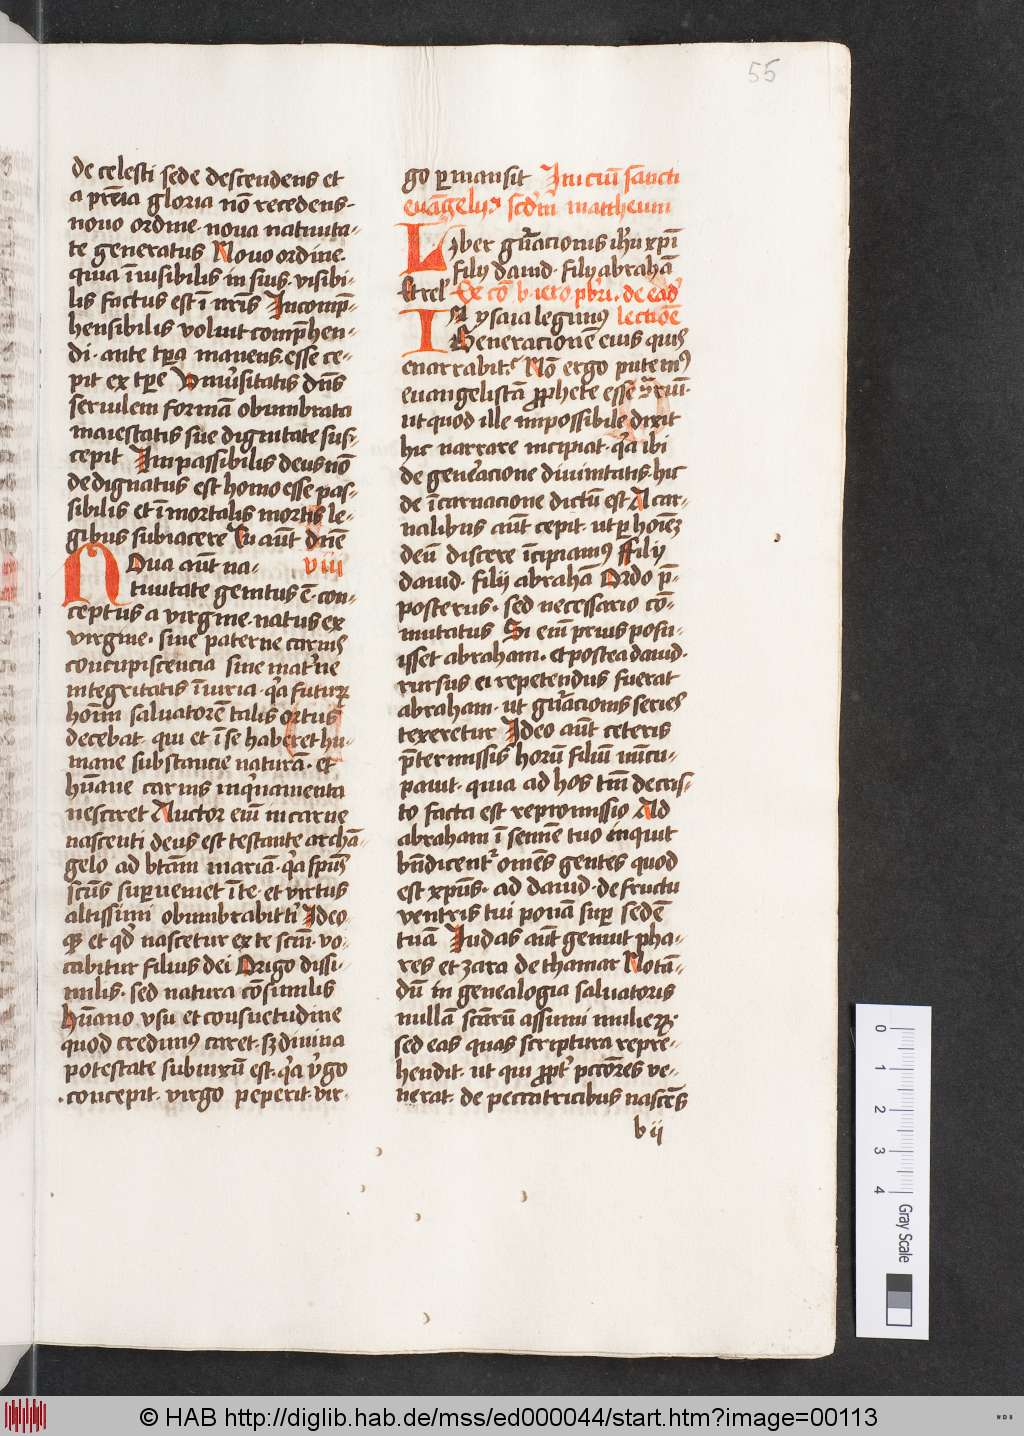 55
de celesti sede descendens et
a pr̄eia gloria nō recedens-
nouo ordine· noua natiuita-
te generatus Nouo ordine·
quia ī uisibilis in suis· visibi-
lis factus est ī nr̄is Incomp̄-
hensibilis voluit comp̄hen-
di· ante tp̄a manens· esse ce-
pit ex tp̄e Vniu̓sitatis dn̄s
seruilem formā obumbrata
maiestatis sue dignitate sus-
cepit Impassibilis deus nō
dedignatus est homo esse pas-
sibilis et īmortalis mortis le-
gibus subiacere Tu aūt dn̄e
Noua aūt na- viii
tiuitate genitus ē· con-
ceptus a virgine· natus ex
virgine· sine paterne carnis
concupiscencia sine mat̓ne
integritatis īiuria· q̓a futuꝝ
hoīm saluatorē talis ortus
decebat· qui et ī se haberet hu-
mane substancie naturā· et
hūane carnis inq̓namenta
nesciret Auctor eiī in carne
nascenti deus est testante archā-
gelo ad bt̄am mariā· q̓a sp̄us
scūs suꝑueniet ī te· et virtus
altissimi obumbrabit t' Ideo-
qꝫ et qd̓ nascetur ex te scm̄· vo-
cabitur filius dei Origo dissi-
milis· sed natura cōsimilis
hūano vsu et consuetudine
quod credimꝰ caret· sꝫ diuina
potestate subnixū est· q̓a v̓go
concepit· virgo peperit· vir-
go ꝑmansit Inicuī sancti
euāgelij scd̓m mattheum
Liber gn̄acionis ih̄u xp̄i
filij dauid· filij abrahā
Et rel̓ Ex cō b· iero p̄bri· de ead̓
IN ysaia legimꝰ lectiōe
Generacionē eius quis
enarrabit· Nō ergo putemꝰ
euangelistā ꝓphete esse ꝯ̄riū·
ut quod ille impossibile dixit
hic narrare incipiat· q̓a ibi
de gene̓acione diuinitatis· hic
de īcarnacione dictū est A car-
nalibus aūt cepit· ut ꝑ hoīeꝫ
deū discere īcipiamꝰ ffilij
dauid· filij abrahā Ordo p̄-
posterus· sed necessario cō-
mutatus Si eiī prius posu-
isset abraham· et postea dauid·
rursus ei repetendus fuerat
abraham· ut gn̄acionis series
texeretur Ideo aūt ceteris
p̄termissis horū filiū nūcu-
pauit· quia ad hos tm̄ de cris-
to facta est repromissio Ad
abraham ī semīe tuo inquit
bn̄dicent̓ omēs gentes quod
est xp̄us· ad dauid· de fructu
ventris tui ponā suꝑ sedē
tuā Iudas aūt genuit pha-
res et zara de thamar Notā-
dū in genealogia saluatoris
nullā sctārū assumi mulieꝝ·
sed eas quas scriptura repre-
hendit· ut qui ꝓpt̓ pctōres ve-
nerat· de peccatricibus nascēs
b ij
0 1 2 3 4
Gray Scale
© HAB http://diglib.hab.de/mss/ed000044/start.htm?image=00113